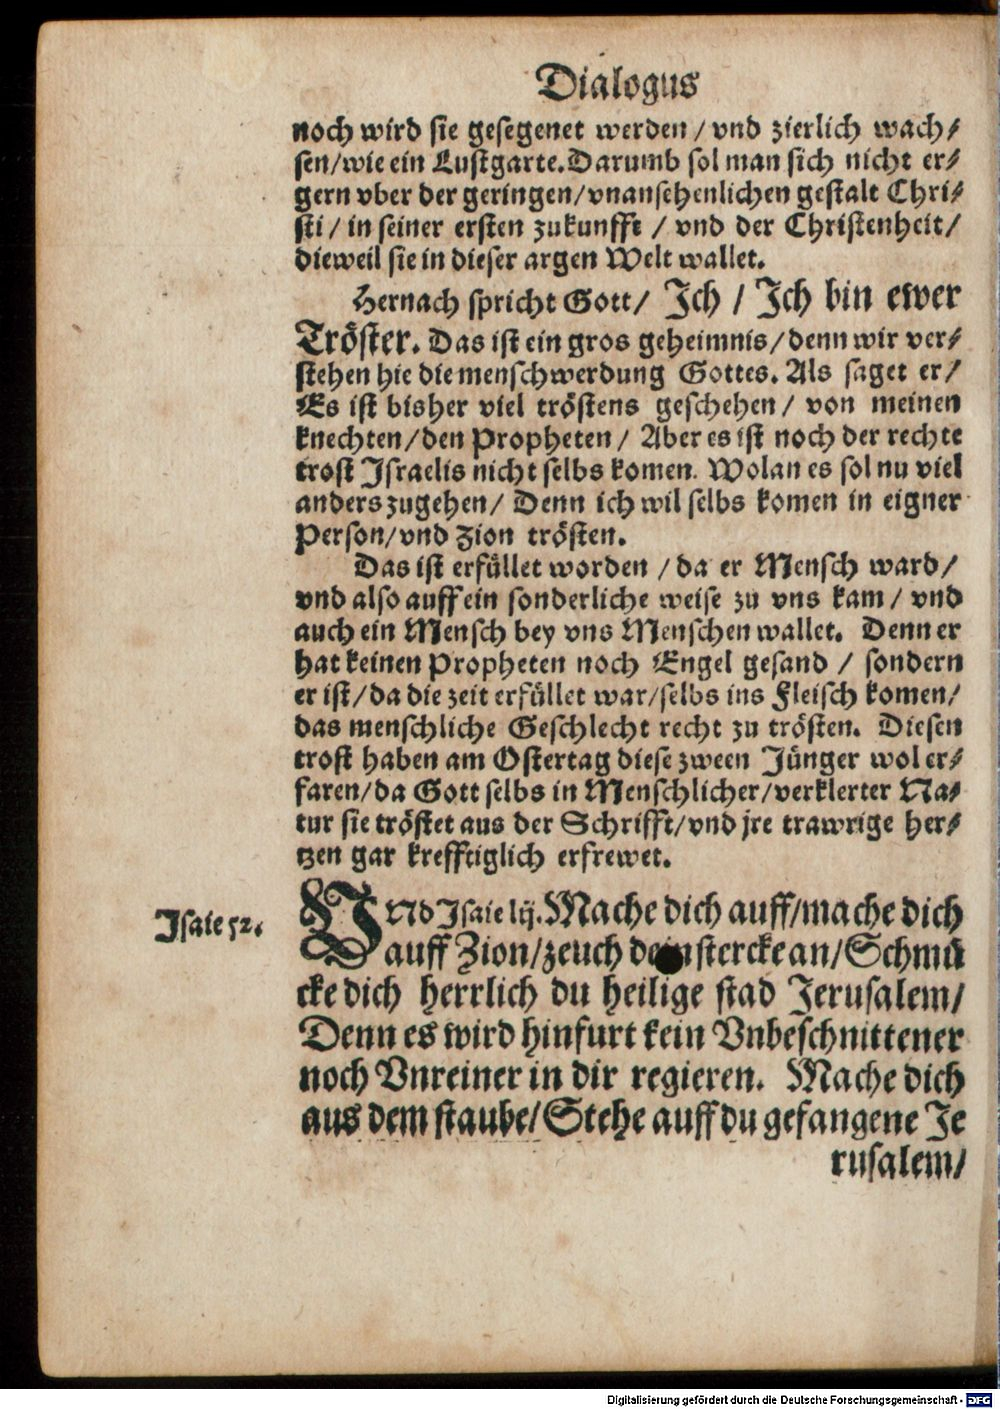 Dialogus
noch wird sie gesegenet werden / vnd zierlich wach/
sen/wie ein Lustgarte. Darumb sol man sich nicht er/
gern vber der geringen/vnansehenlichen gestalt Chri/
sti / in seiner ersten zukunfft / vnd der Christenheit/
dieweil sie in dieser argen Welt wallet.
Hernach spricht Gott/ Ich / Ich bin ewer
Tröster. Das ist ein gros geheimnis/denn wir ver/
stehen hie die menschwerdung Gottes. Als saget er/
Es ist bisher viel tröstens geschehen/ von meinen
knechten/den Propheten/ Aber es ist noch der rechte
trost Israelis nicht selbs komen. Wolan es sol nu viel
anders zugehen/ Denn ich wil selbs komen in eigner
Person/vnd Zion trösten.
Das ist erfüllet worden /da er Mensch ward/
vnd also auff ein sonderliche weise zu vns kam/ vnd
auch ein Mensch bey vns Menschen wallet. Denn er
hat keinen Propheten noch Engel gesand / sondern
er ist/da die zeit erfüllet war/selbs ins Fleisch komen/
das menschliche Geschlecht recht zu trösten. Diesen
trost haben am Ostertag diese zween Jünger wol er/
faren/da Gott selbs in Menschlicher/verklerter Na/
tur sie tröstet aus der Schrifft/vnd jre trawrige her/
tzen gar krefftiglich erfrewet.
Isaie 52.
VNd Isaie lij. Mache dich auff/mache dich
auff Zion/zeuch dein stercke an/Schmü
cke dich herrlich du heilige stad Jerusalem/
Denn es wird hinfurt kein Vnbeschnittener
noch Vnreiner in dir regieren. Mache dich
aus dem staube/Stehe auff du gefangene Je
rusalem/
Digitalisierung gefördert durch die Deutsche Forschungsgemeinschaft - DFG